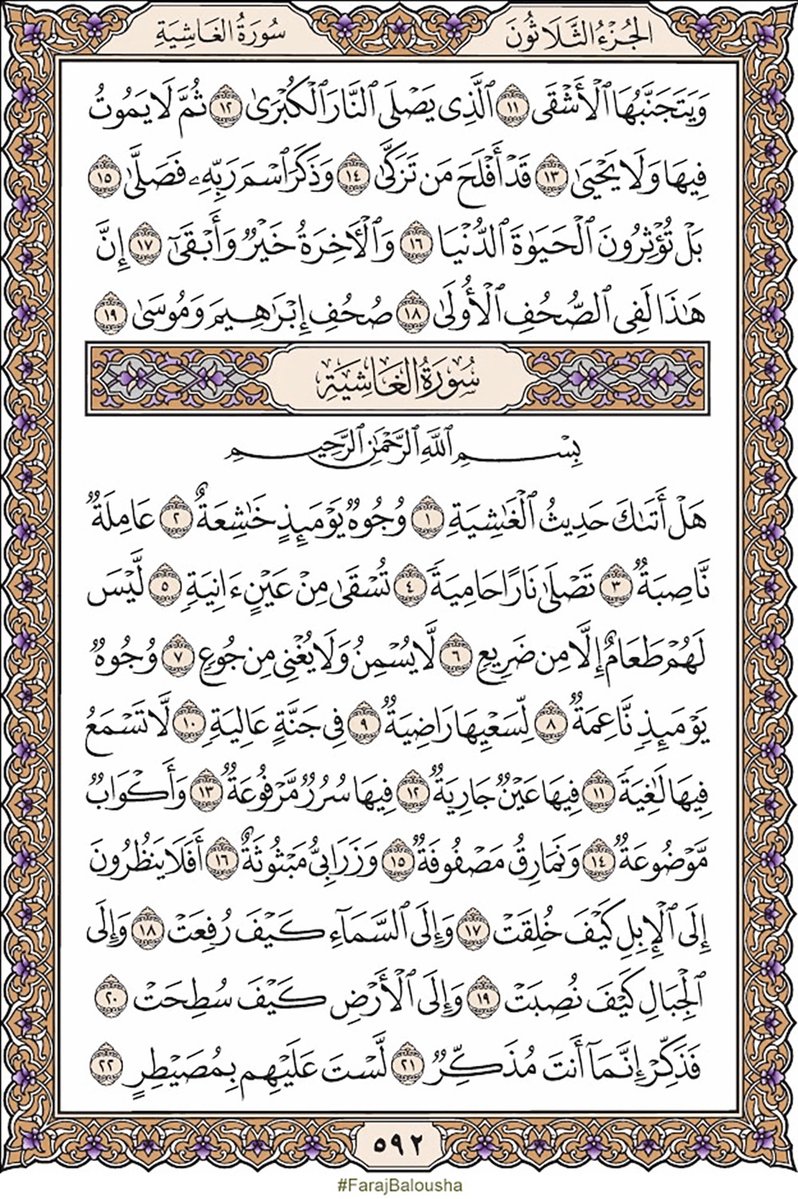 الجُزْءُ الثَّلَاثُونَ
سُورَةُ الغَاشِيَةِ
وَيَتَجَنَّبُهَا ٱلْأَشْقَى ١١ ٱلَّذِى يَصْلَى ٱلنَّارَ ٱلْكُبْرَىٰ ١٢ ثُمَّ لَا يَمُوتُ
فِيهَا وَلَا يَحْيَىٰ ١٣ قَدْ أَفْلَحَ مَن تَزَكَّىٰ ١٤ وَذَكَرَ ٱسْمَ رَبِّهِۦ فَصَلَّىٰ ١٥
بَلْ تُؤْثِرُونَ ٱلْحَيَوٰةَ ٱلدُّنْيَا ١٦ وَٱلْـَٔاخِرَةُ خَيْرٌ وَأَبْقَىٰٓ ١٧ إِنَّ
هَـٰذَا لَفِى ٱلصُّحُفِ ٱلْأُولَىٰ ١٨ صُحُفِ إِبْرَٰهِيمَ وَمُوسَىٰ ١٩
سُورَةُ الغَاشِيَةِ
بِسْمِ ٱللَّهِ ٱلرَّحْمَـٰنِ ٱلرَّحِيمِ
هَلْ أَتَىٰكَ حَدِيثُ ٱلْغَـٰشِيَةِ ١ وُجُوهٌ يَوْمَئِذٍ خَـٰشِعَةٌ ٢ عَامِلَةٌ
نَّاصِبَةٌ ٣ تَصْلَىٰ نَارًا حَامِيَةً ٤ تُسْقَىٰ مِنْ عَيْنٍ ءَانِيَةٍ ٥ لَّيْسَ
لَهُمْ طَعَامٌ إِلَّا مِن ضَرِيعٍ ٦ لَّا يُسْمِنُ وَلَا يُغْنِى مِن جُوعٍ ٧ وُجُوهٌ
يَوْمَئِذٍ نَّاعِمَةٌ ٨ لِّسَعْيِهَا رَاضِيَةٌ ٩ فِى جَنَّةٍ عَالِيَةٍ ١٠ لَّا تَسْمَعُ
فِيهَا لَـٰغِيَةً ١١ فِيهَا عَيْنٌ جَارِيَةٌ ١٢ فِيهَا سُرُرٌ مَّرْفُوعَةٌ ١٣ وَأَكْوَابٌ
مَّوْضُوعَةٌ ١٤ وَنَمَارِقُ مَصْفُوفَةٌ ١٥ وَزَرَابِىُّ مَبْثُوثَةٌ ١٦ أَفَلَا يَنظُرُونَ
إِلَى ٱلْإِبِلِ كَيْفَ خُلِقَتْ ١٧ وَإِلَى ٱلسَّمَآءِ كَيْفَ رُفِعَتْ ١٨ وَإِلَى
ٱلْجِبَالِ كَيْفَ نُصِبَتْ ١٩ وَإِلَى ٱلْأَرْضِ كَيْفَ سُطِحَتْ ٢٠
فَذَكِّرْ إِنَّمَآ أَنتَ مُذَكِّرٌ ٢١ لَّسْتَ عَلَيْهِم بِمُصَيْطِرٍ ٢٢
٥٩٢
#FarajBalousha